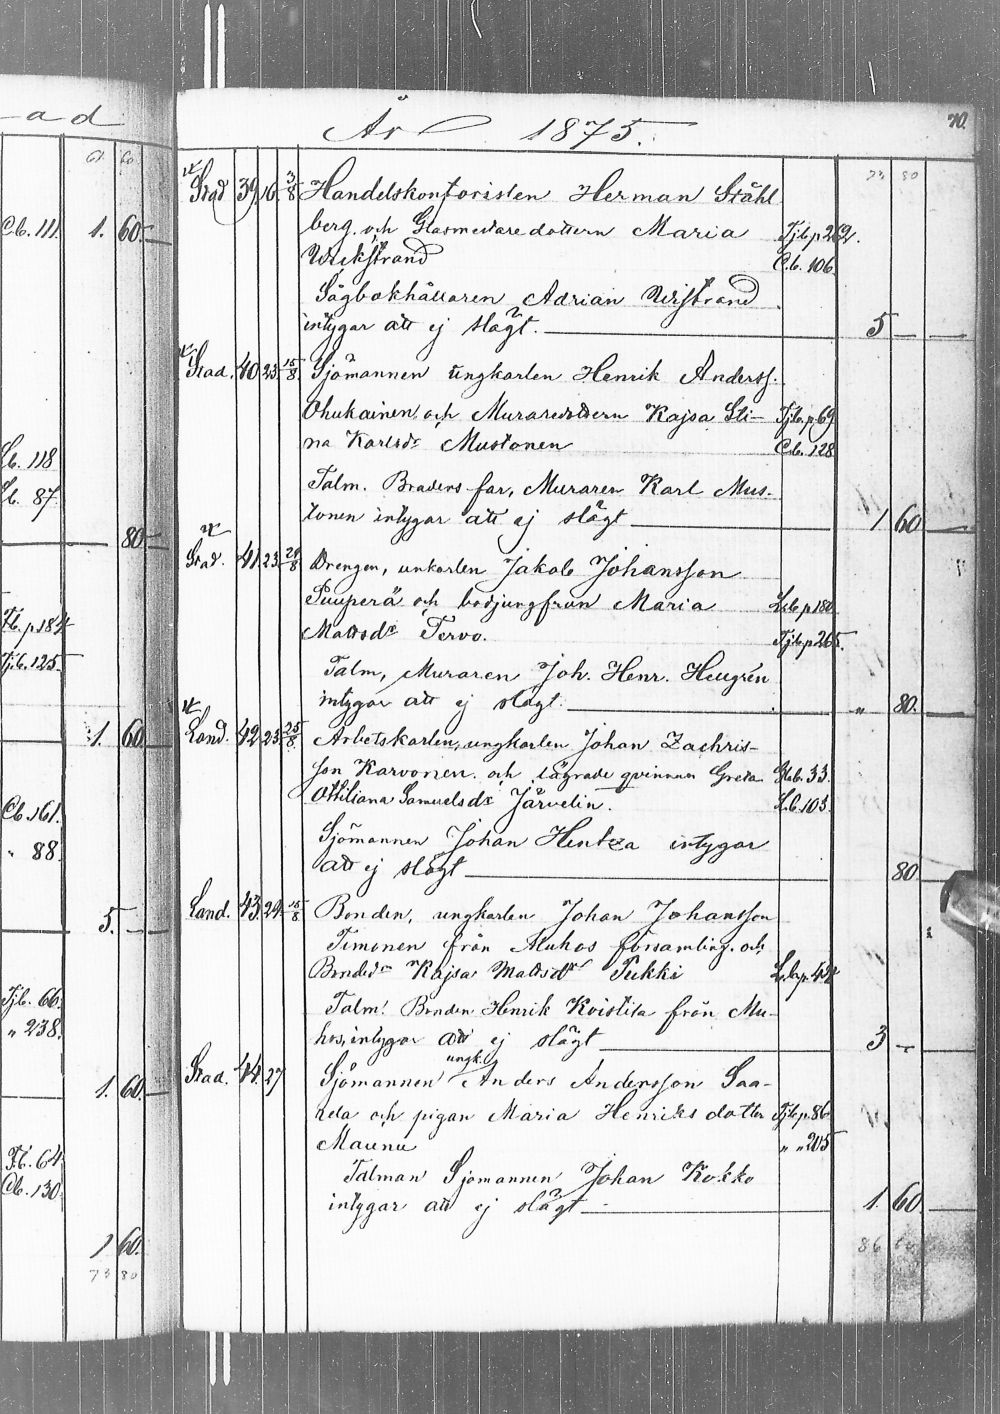 ad
61. 60.
Cb. 111. 1. 60.
Cb. 118
Cb. 87.
80.
Fb. p 184
Tjb. 125.
1. 60.
Cb. 161.
" 88.
5. —
Tjb. 66.
" 238.
1. 60.
Fb. 64.
Cb. 130.
1 60.
73 80
År 1875. 70.
73 80
Stad 39. 16. 3/8 Handelskontoristen Herman Ståhl
berg. och Glasmästaredottern Maria Tjb. p 262.
Wickstrand Cb. 106.
Sågbokhållaren Adrian Wistrand
intygar att ej slägt. 5 —
Stad. 40. 23. 15/8 Sjömannen ungkarlen Henrik Anderss.
Ohukainen och Muraredottern Kajsa Sti- Tjb. p. 69
na Karlsdr Mustonen Cb. 128
Talm. Brudens far, Muraren Karl Mus-
tonen intygar att ej slägt 1 60
Stad. 41. 23. 29/8 Drengen, unkarlen Jakob Johansson
Puuperä och bodjungfrun Maria Lb. p 180
Mattsdr Tervo. Tjb. p 265.
Talm, Muraren Joh. Henr. Heugrén
intygar att ej slägt. " 80.
Land. 42. 23. 25/8 Arbetskarlen, ungkarlen Johan Zachris-
son Karvonen. och lägrade qvinnan Greta 33.
Ottiliana Samuelsdr Järvelin. Lb. 103.
Sjömannen Johan Hentea intygar
att ej slägt 80.
Land. 43. 24. 15/8 Bonden, ungkarlen Johan Johansson
Timonen från Muhos församling. och
Bondedr Kajsa Mattsdr Pukki Lb. p. 434
Talm. Bonden Henrik Koistila från Mu-
hos, intygar att ej slägt 3 —
Stad. 44. 27 Sjömannen ungk. Anders Andersson Saa-
rela och pigan Maria Henriks dotter Tjb. p. 86
Maunu " " 205
Talman Sjömannen Johan Kokko
intygar att ej slägt 1. 60
86